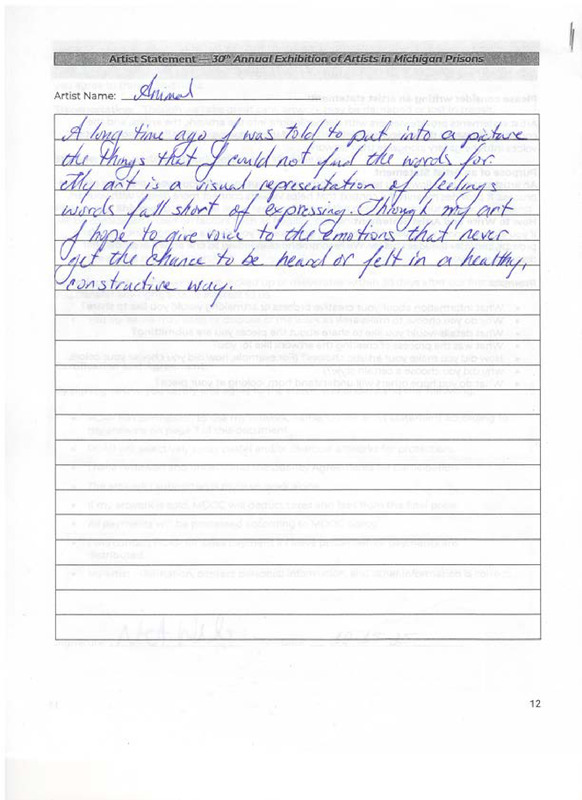 Artist Statement — 30th Annual Exhibition of Artists in Michigan Prisons
Artist Name: Animal
A long time ago I was told to put into a picture
the things that I could not find the words for.
My art is a visual representation of feelings
words fall short of expressing. Through my art
I hope to give voice to the emotions that never
get the chance to be heard or felt in a healthy,
constructive way.
12